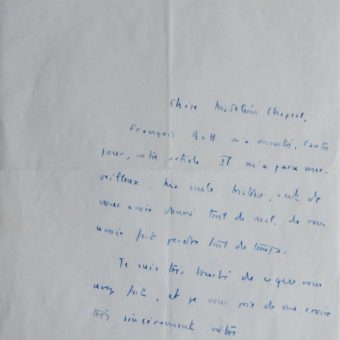 Chère Madeleine Chapsal,
François Bott m'a montré, l'autre
jour, votre article. Il m'a paru mer-
veilleux. Ma seule tristesse, c'est de
vous avoir donné tant de mal, de vous
avoir fait perdre tant de temps.
Je suis très touché de ce que vous
avez fait, et je vous prie de me croire
très sincèrement vôtre